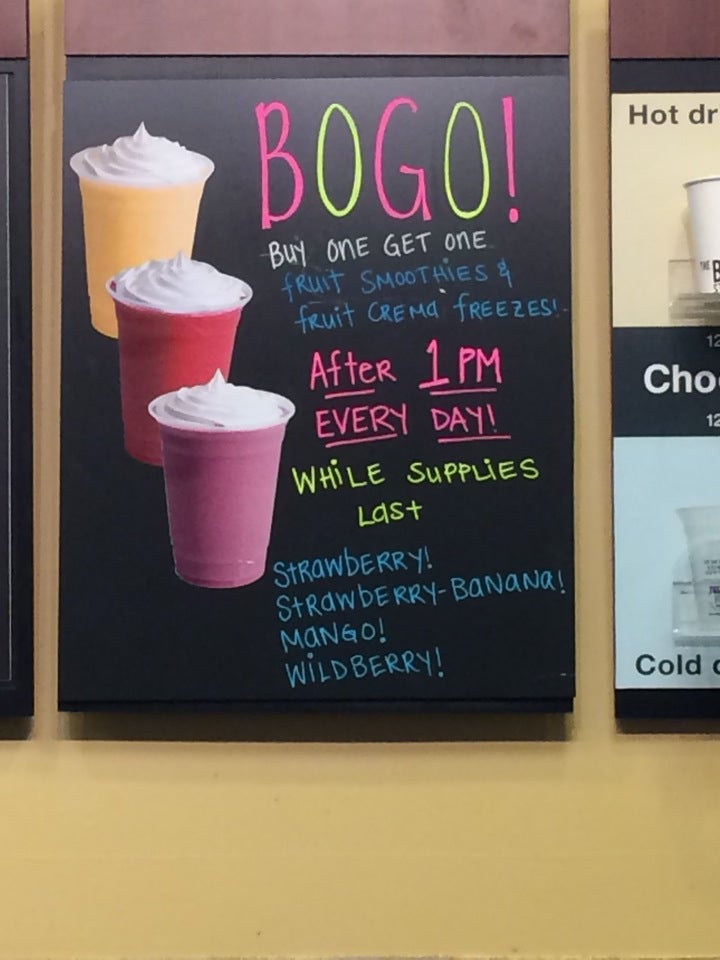 BOGO!
BUY ONE GET ONE
fRUIT SMOOTHiES &
fruit CREMa fREEZES!
AfteR 1 PM
EVERY DAY!
WHiLE SUPPLiES
Last
STRAWbERRY!
STRAWbERRY-BaNaNa!
MaNGO!
WiLDBERRY!
Hot dr
THE B
12
Cho
12
Cold